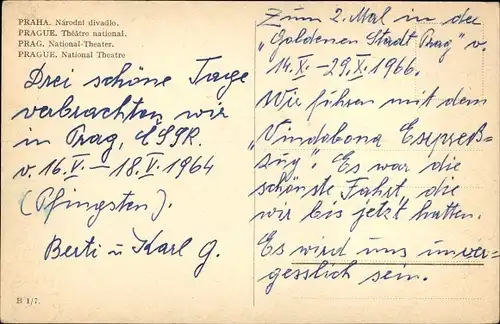 PRAHA. Národní divadlo.
PRAGUE. Théâtre national.
PRAG. National-Theater.
PRAGUE. National Theatre
Drei schöne Tage
verbrachten wir
in Prag, ČSSR.
v. 16.V. – 18.V.1964
(Pfingsten).
Berti u Karl G.
B 1/7.
Zum 2. Mal in der
„Goldenen Stadt Prag" v.
14.X. – 29.X.1966.
Wir führen mit dem
„Vindobona Expreß-
zug". Es war die
schönste Fahrt, die
wir bis jetzt hatten.
Es wird uns unver-
gesslich sein.